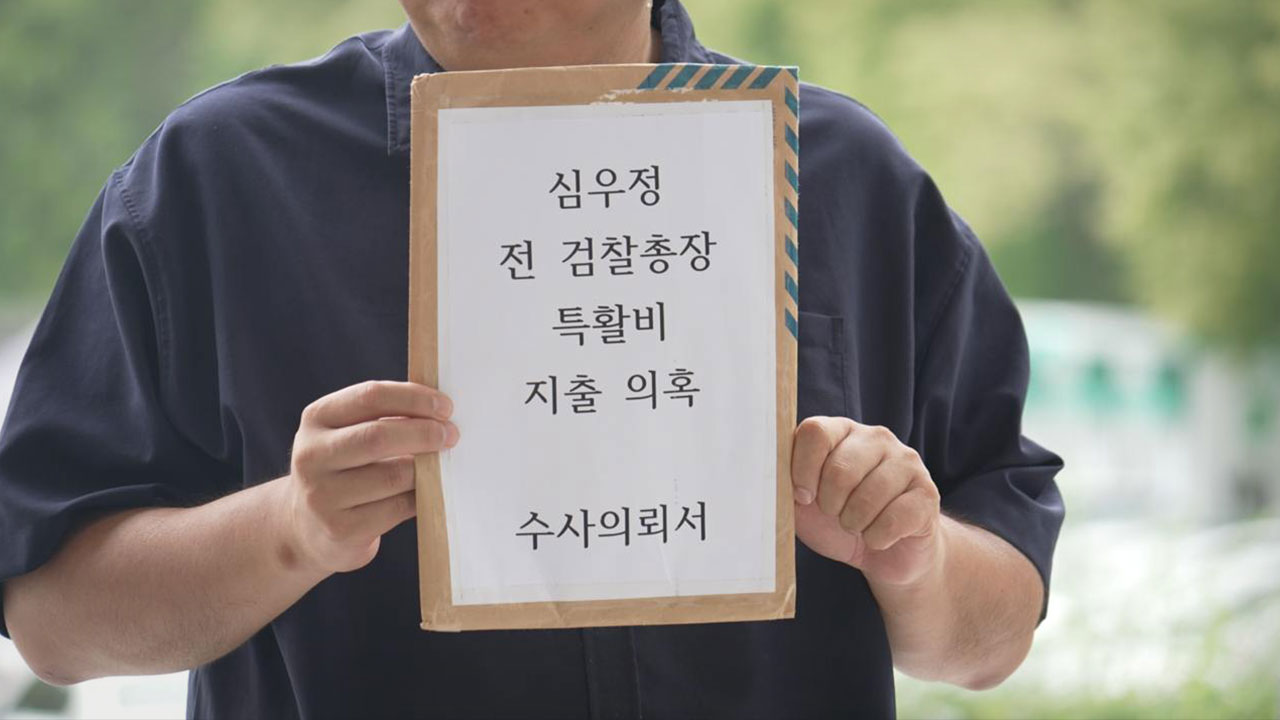 심우정
전 검찰총장
특활비
지출 의혹
수사의뢰서